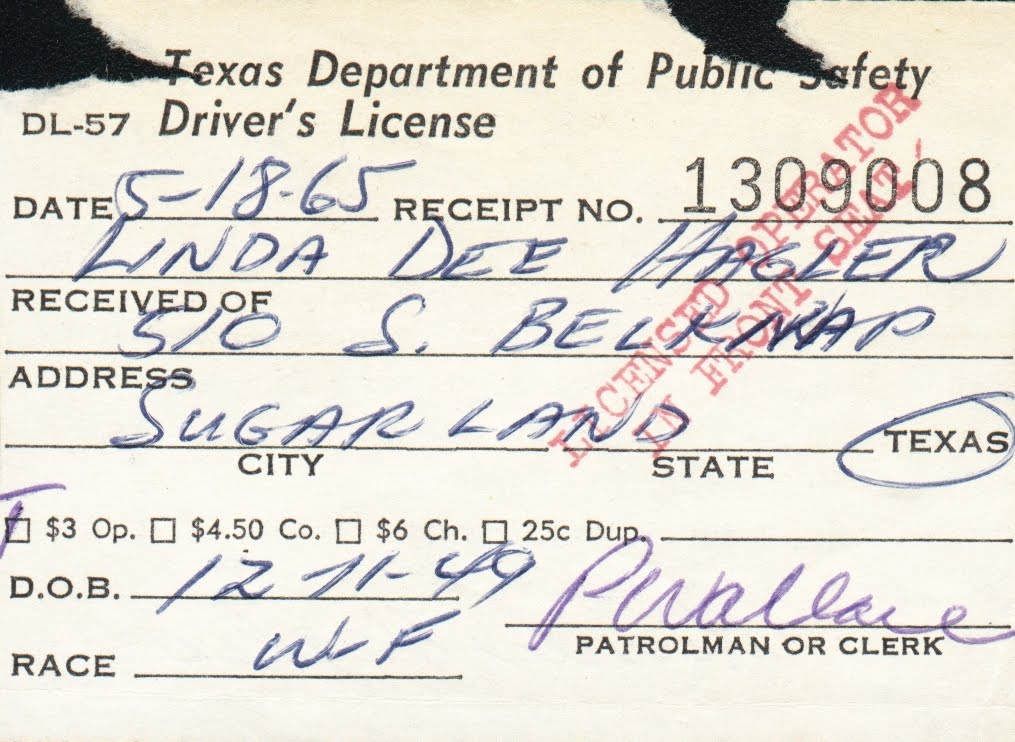 Texas Department of Public Safety
DL-57 Driver's License
DATE 5-18-65 RECEIPT NO. 1309008
LINDA DEE HAGLER
RECEIVED OF
510 S. BELKNAP
ADDRESS
SUGAR LAND TEXAS
CITY STATE
$3 Op. $4.50 Co. $6 Ch. 25c Dup.
D.O.B. 12-11-49
P Wallace
PATROLMAN OR CLERK
RACE W-F
LICENSED OPERATOR
IN FRONT SEAT